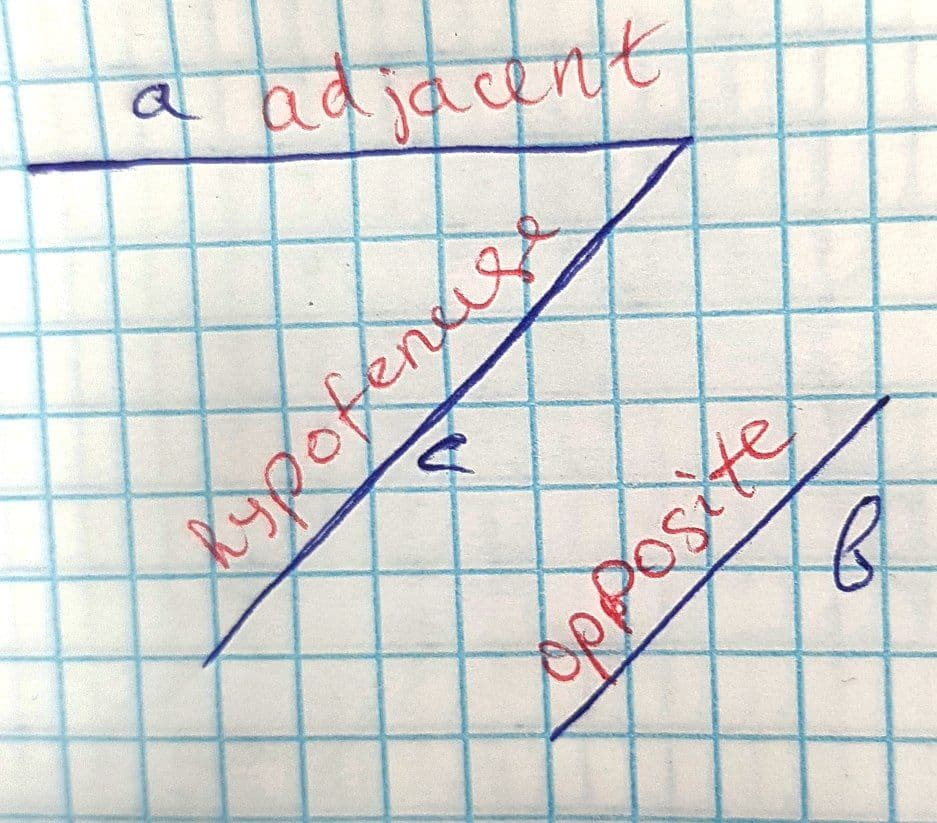 a adjacent
hypotenuse
c
opposite
b